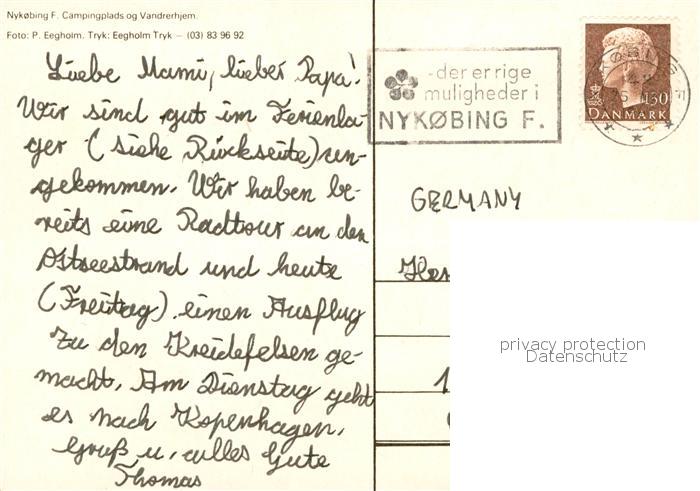 Nykøbing F. Campingplads og Vandrerhjem.
Foto: P. Eegholm. Tryk: Eegholm Tryk – (03) 83 96 92
Liebe Mami, lieber Papa!
Wir sind gut im Ferienla-
ger (siehe Rückseite) an-
gekommen. Wir haben be-
reits eine Radtour an den
Ostseestrand und heute
(Freitag) einen Ausflug
zu den Kreidefelsen ge-
macht. Am Dienstag geht
es nach Kopenhagen.
Gruß u. alles Gute
Thomas
-der er rige
muligheder i
NYKØBING F.
130
DANMARK
GERMANY
privacy protection
Datenschutz